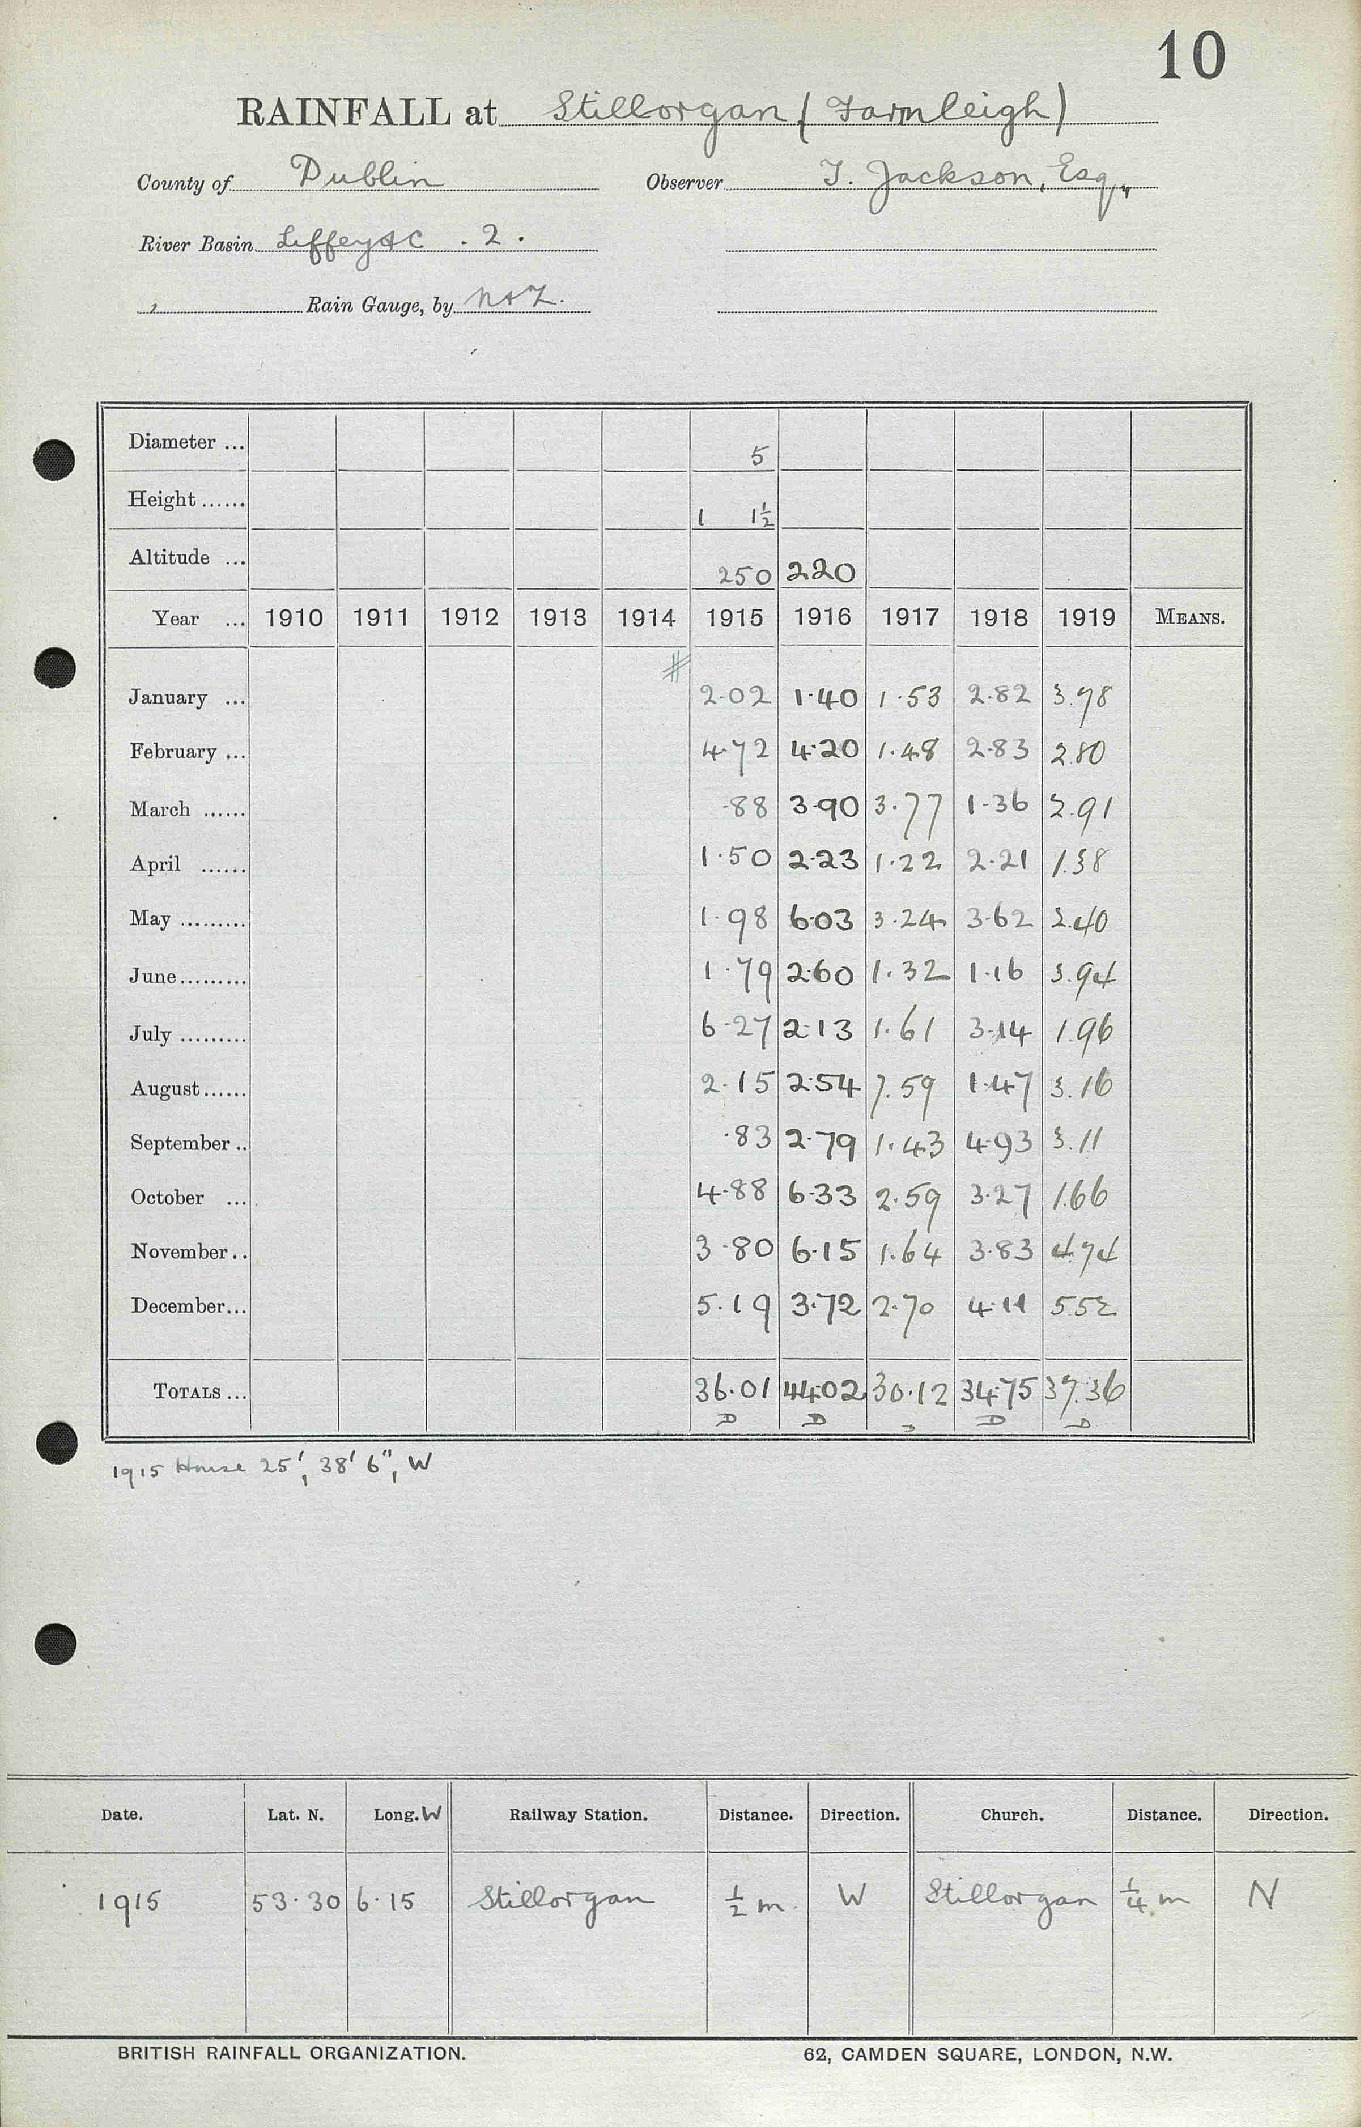 10
RAINFALL at Stillorgan (Farmleigh)
County of Dublin Observer T. Jackson, Esq,
River Basin Liffey &c . 2 .
Rain Gauge, by N & Z.
Diameter ... 5
Height ...... 1 1½
Altitude ... 250 220
Year ... 1910 1911 1912 1913 1914 1915 1916 1917 1918 1919 MEANS.
#
January ... 2.02 1.40 1.53 2.82 3.78
February ... 4.72 4.20 1.48 2.83 2.80
March ...... .88 3.90 3.77 1.36 2.91
April ...... 1.50 2.23 1.22 2.21 1.38
May ......... 1.98 6.03 3.24 3.62 2.40
June ......... 1.79 2.60 1.32 1.16 3.94
July ......... 6.27 2.13 1.61 3.14 1.96
August ...... 2.15 2.54 7.59 1.47 3.16
September .. .83 2.79 1.43 4.93 3.11
October ... 4.88 6.33 2.59 3.27 1.66
November .. 3.80 6.15 1.64 3.83 4.74
December ... 5.19 3.72 2.70 4.11 5.52
TOTALS ... 36.01 44.02 30.12 34.75 37.36
D D D D D
1915 House 25', 38' 6", W
Date. Lat. N. Long. W Railway Station. Distance. Direction. Church. Distance. Direction.
1915 53.30 6.15 Stillorgan ½ m. W Stillorgan ¼ m N
BRITISH RAINFALL ORGANIZATION. 62, CAMDEN SQUARE, LONDON, N.W.